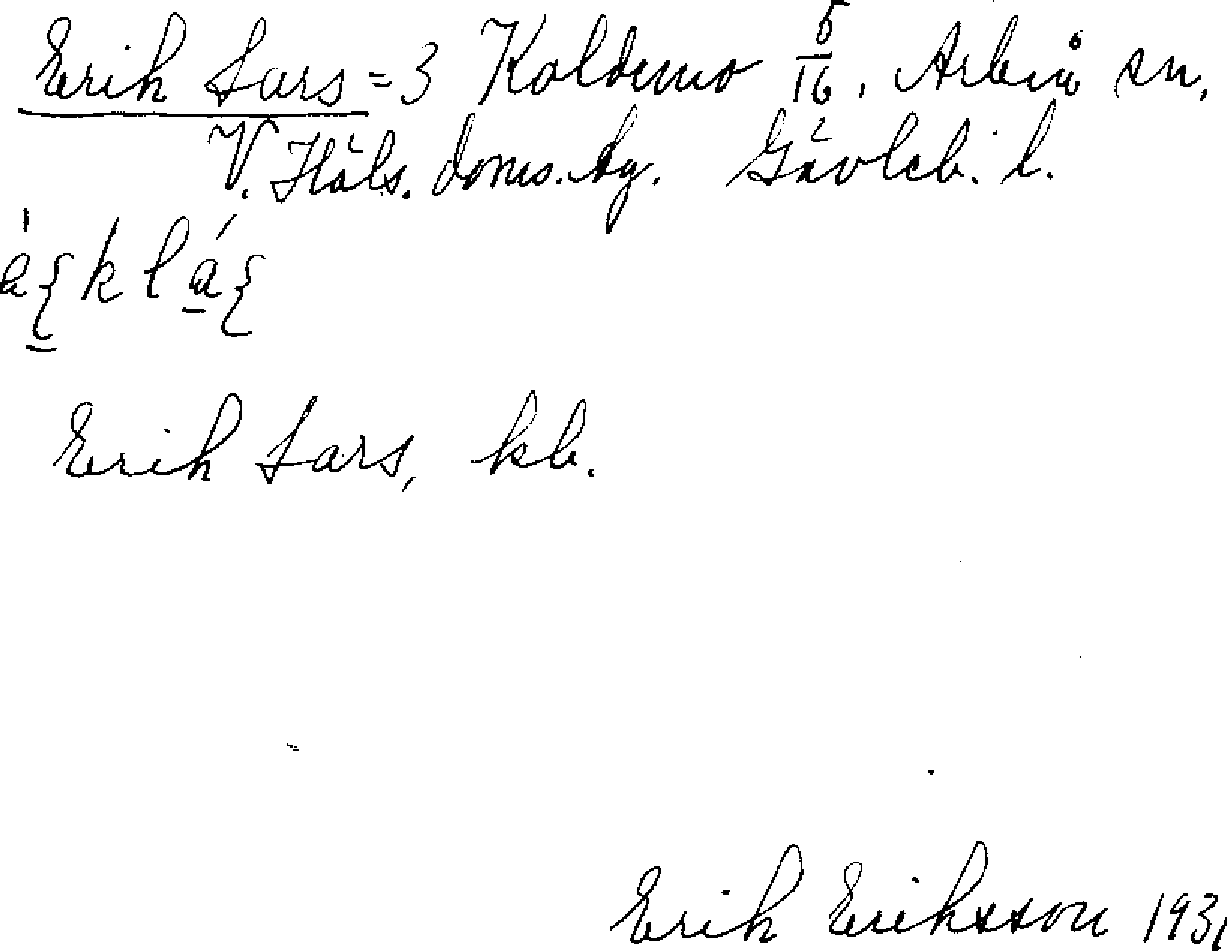 Erik Lars = 3 Koldemo 5/16. Arbrå sn.
V. Häls. doms.hg. Gävleb. l.
Erik Lars, kb.
Erik Eriksson 1931